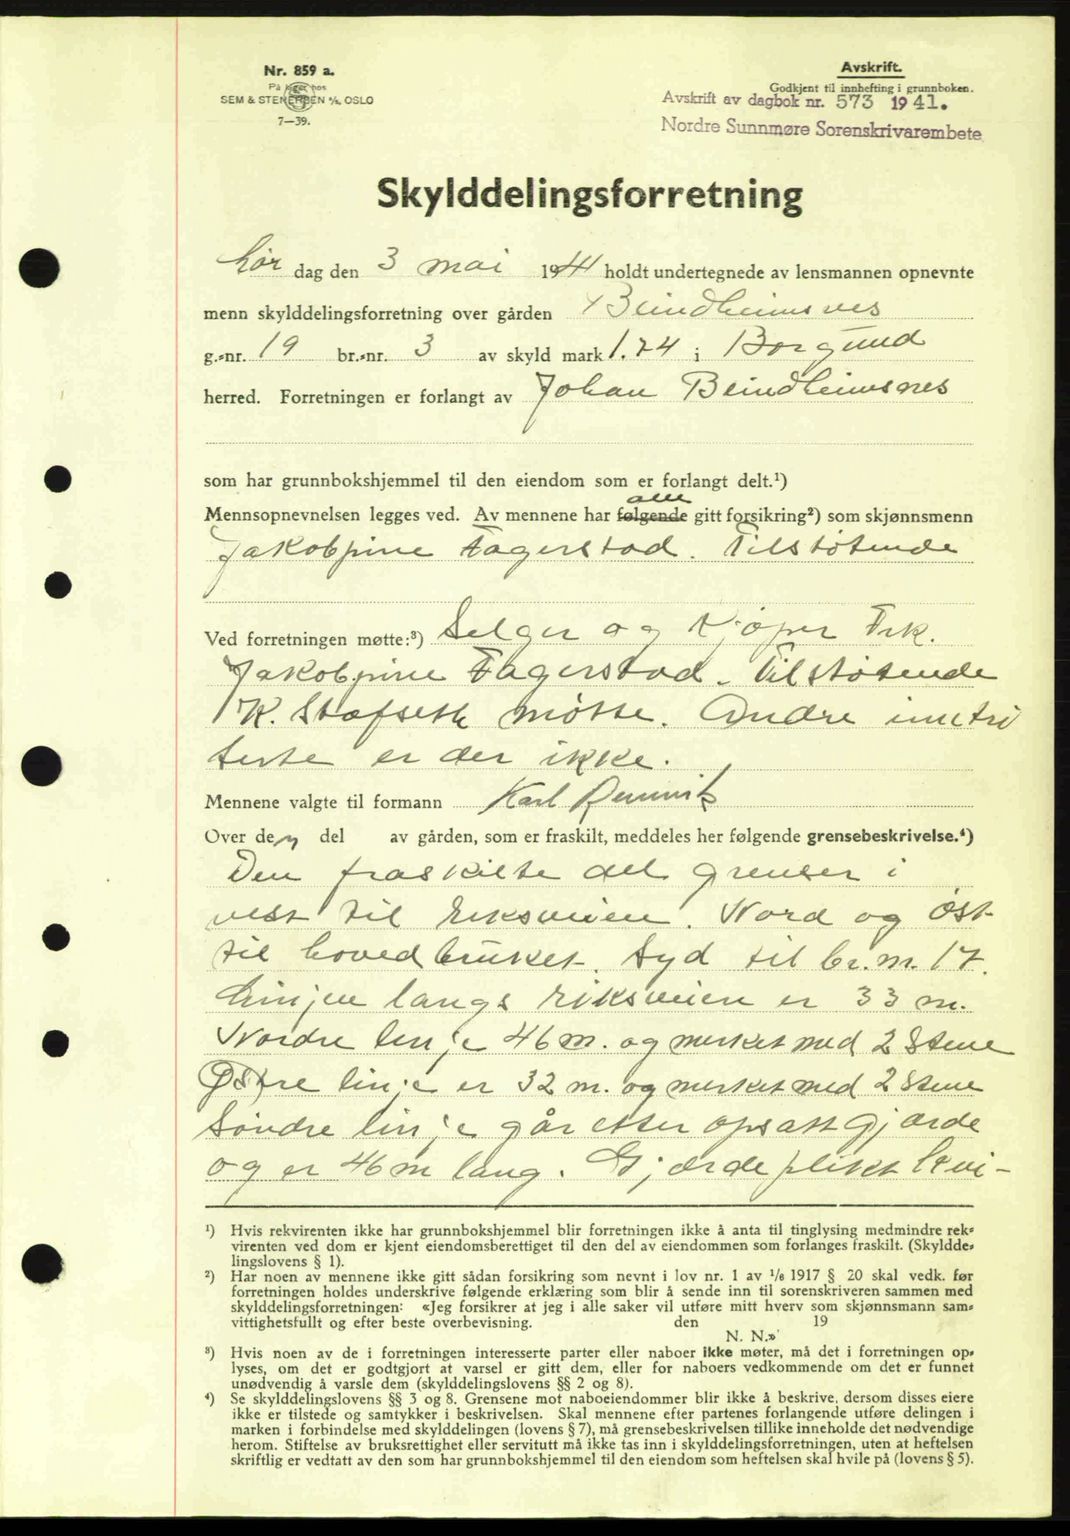 Nr. 859 a.
På lager hos
SEM & STENERSEN A/S, OSLO
7—39.
Avskrift.
Godkjent til innhefting i grunnboken.
Avskrift av dagbok nr. 573 1941.
Nordre Sunnmøre Sorenskrivarembete
Skylddelingsforretning
Lør dag den 3 mai 1941 holdt undertegnede av lensmannen opnevnte
menn skylddelingsforretning over gården Beindheimsnes
g.-nr. 19 br.-nr. 3 av skyld mark 1.74 i Borgund
herred. Forretningen er forlangt av Johan Beindheimsnes
som har grunnbokshjemmel til den eiendom som er forlangt delt.¹)
alle
Mennsopnevnelsen legges ved. Av mennene har følgende gitt forsikring²) som skjønnsmenn
Jakobpine Fagerstad. Tilstøtende
Ved forretningen møtte:³) Selger og Kjøper Frk.
Jakobpine Fagerstad. Tilstøtende
K. Stafseth møtte. Andre inntri
serte er der ikke.
Mennene valgte til formann Karl
Over den del av gården, som er fraskilt, meddeles her følgende grensebeskrivelse.⁴)
Den fraskilte del grenser i
vest til riksveien. Nord og øst
til hovedbruket. Syd til br.nr. 17.
Linjen langs riksveien er 33 m.
Nordre linje 46 m. og merket med 2 stene
Østre linje er 32 m. og merket med 2 stene
Søndre linje går etter opsatt gjærde
og er 46 m lang. Gjærdeplikt kvi-
¹) Hvis rekvirenten ikke har grunnbokshjemmel blir forretningen ikke å anta til tinglysing medmindre rek-
virenten ved dom er kjent eiendomsberettiget til den del av eiendommen som forlanges fraskilt. (Skyldde-
lingslovens § 1).
²) Har noen av mennene ikke gitt sådan forsikring som nevnt i lov nr. 1 av 1/6 1917 § 20 skal vedk. før
forretningen holdes underskrive følgende erklæring som blir å sende inn til sorenskriveren sammen med
skylddelingsforretningen: «Jeg forsikrer at jeg i alle saker vil utføre mitt hverv som skjønnsmann sam-
vittighetsfullt og efter beste overbevisning. den 19
N. N.»
³) Hvis noen av de i forretningen interesserte parter eller naboer ikke møter, må det i forretningen op-
lyses, om det er godtgjort at varsel er gitt dem, eller for naboers vedkommende om det er funnet
unødvendig å varsle dem (skylddelingslovens §§ 2 og 8).
⁴) Se skylddelingslovens §§ 3 og 8. Grensene mot naboeiendommer blir ikke å beskrive, dersom disses eiere
ikke er tilstede og samtykker i beskrivelsen. Skal mennene efter partenes forlangende utføre delingen i
marken i forbindelse med skylddelingen (lovens § 7), må grensebeskrivelsen tillike inneholde det nødvendige
herom. Stiftelse av bruksrettighet eller servitutt må ikke tas inn i skylddelingsforretningen, uten at heftelsen
skriftlig er vedtatt av den som har grunnbokshjemmel til den eiendom som heftelsen skal hvile på (lovens § 5).